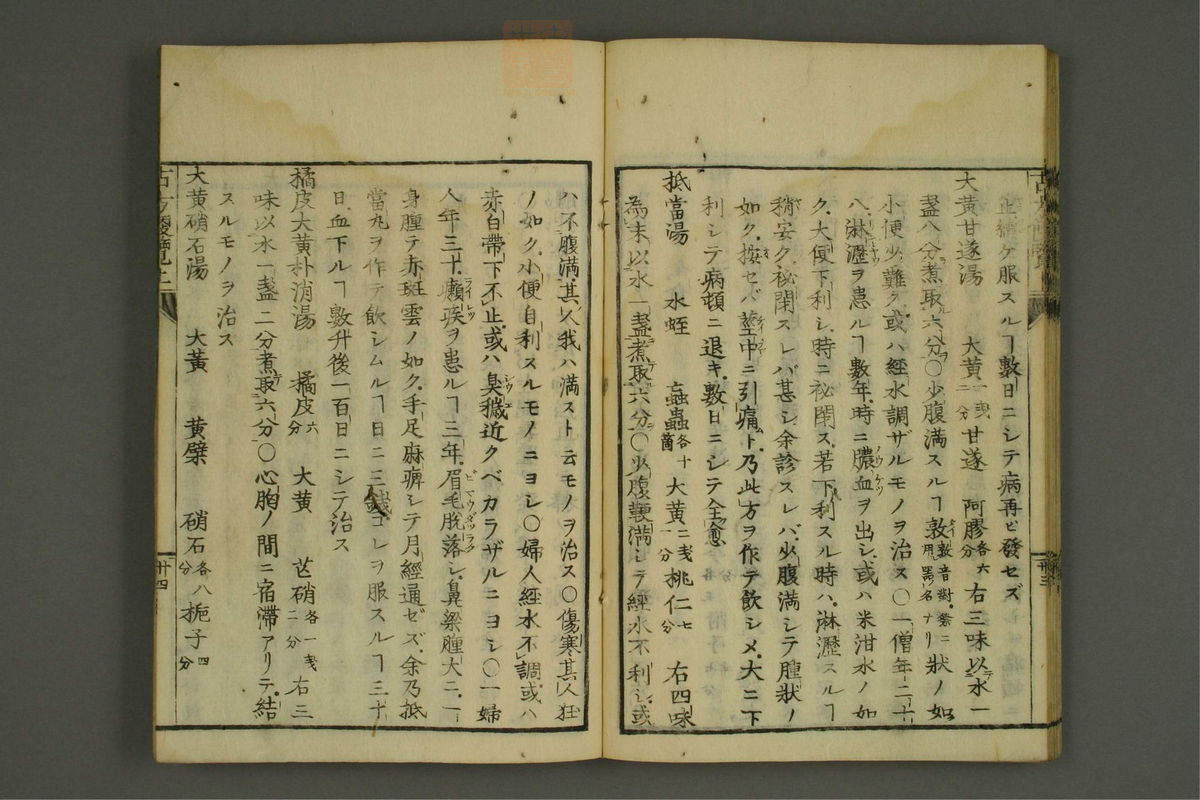 止續ケ服スルヿ數日ニシテ病再ビ發セズ
大黄甘遂湯 大黄一戔二分 甘遂 阿膠各六分 右三味以水一
盞八分煮取六分〇少腹滿スルヿ敦敦音對。祭ニ用ル噐ノ名ナリ狀ノ如
小便少シ難ク。或ハ經水調ザルモノヲ治ス〇一僧年二十
八。淋瀝ヲ患ルヿ數年。時ニ膿血ヲ出シ。或ハ米泔水ノ如
ク。大便下利シ。時ニ祕閉ス。若下利スル時ハ。淋瀝スルヿ
稍安ク。祕閉スレバ甚シ。余診スレバ。少腹滿シテ腫狀ノ
如ク。按セバ莖中ニ引痛ム。乃此方ヲ作テ飲シメ。大ニ下
利シテ病頓ニ退キ。數日ニシテ全愈
抵當湯 水蛭 䖟蟲各十箇 大黄二戔一分 桃仁七分 右四味
為末以水一盞煮取六分〇少腹鞕滿シテ經水不利シ。或
ハ不腹滿。其人我ハ滿スト云モノヲ治ス〇傷寒其人狂
ノ如ク。小便自利スルモノニヨシ〇婦人經水不調。或ハ
赤白帶下不止。或ハ臭穢近クベカラザルニヨシ〇一婦
人年三十。癩疾ヲ患ルヿ三年。眉毛脱落シ。鼻梁腫大ニ。一
身腫テ赤斑雲ノ如ク。手足麻痺シテ月經通ゼズ。余乃抵
當丸ヲ作テ飲シムルヿ日ニ三錢コレヲ服スルヿ三十
日。血下ルヿ數升後一百日ニシテ治ス
橘皮大黄朴消湯 橘皮六分 大黄 芒硝各一戔二分 右三
味以水一盞二分煮取六分〇心胸ノ間ニ宿滯アリテ。結
スルモノヲ治ス
大黄硝石湯 大黄 黄檗 硝石各八分 梔子四分
卅三
卅四